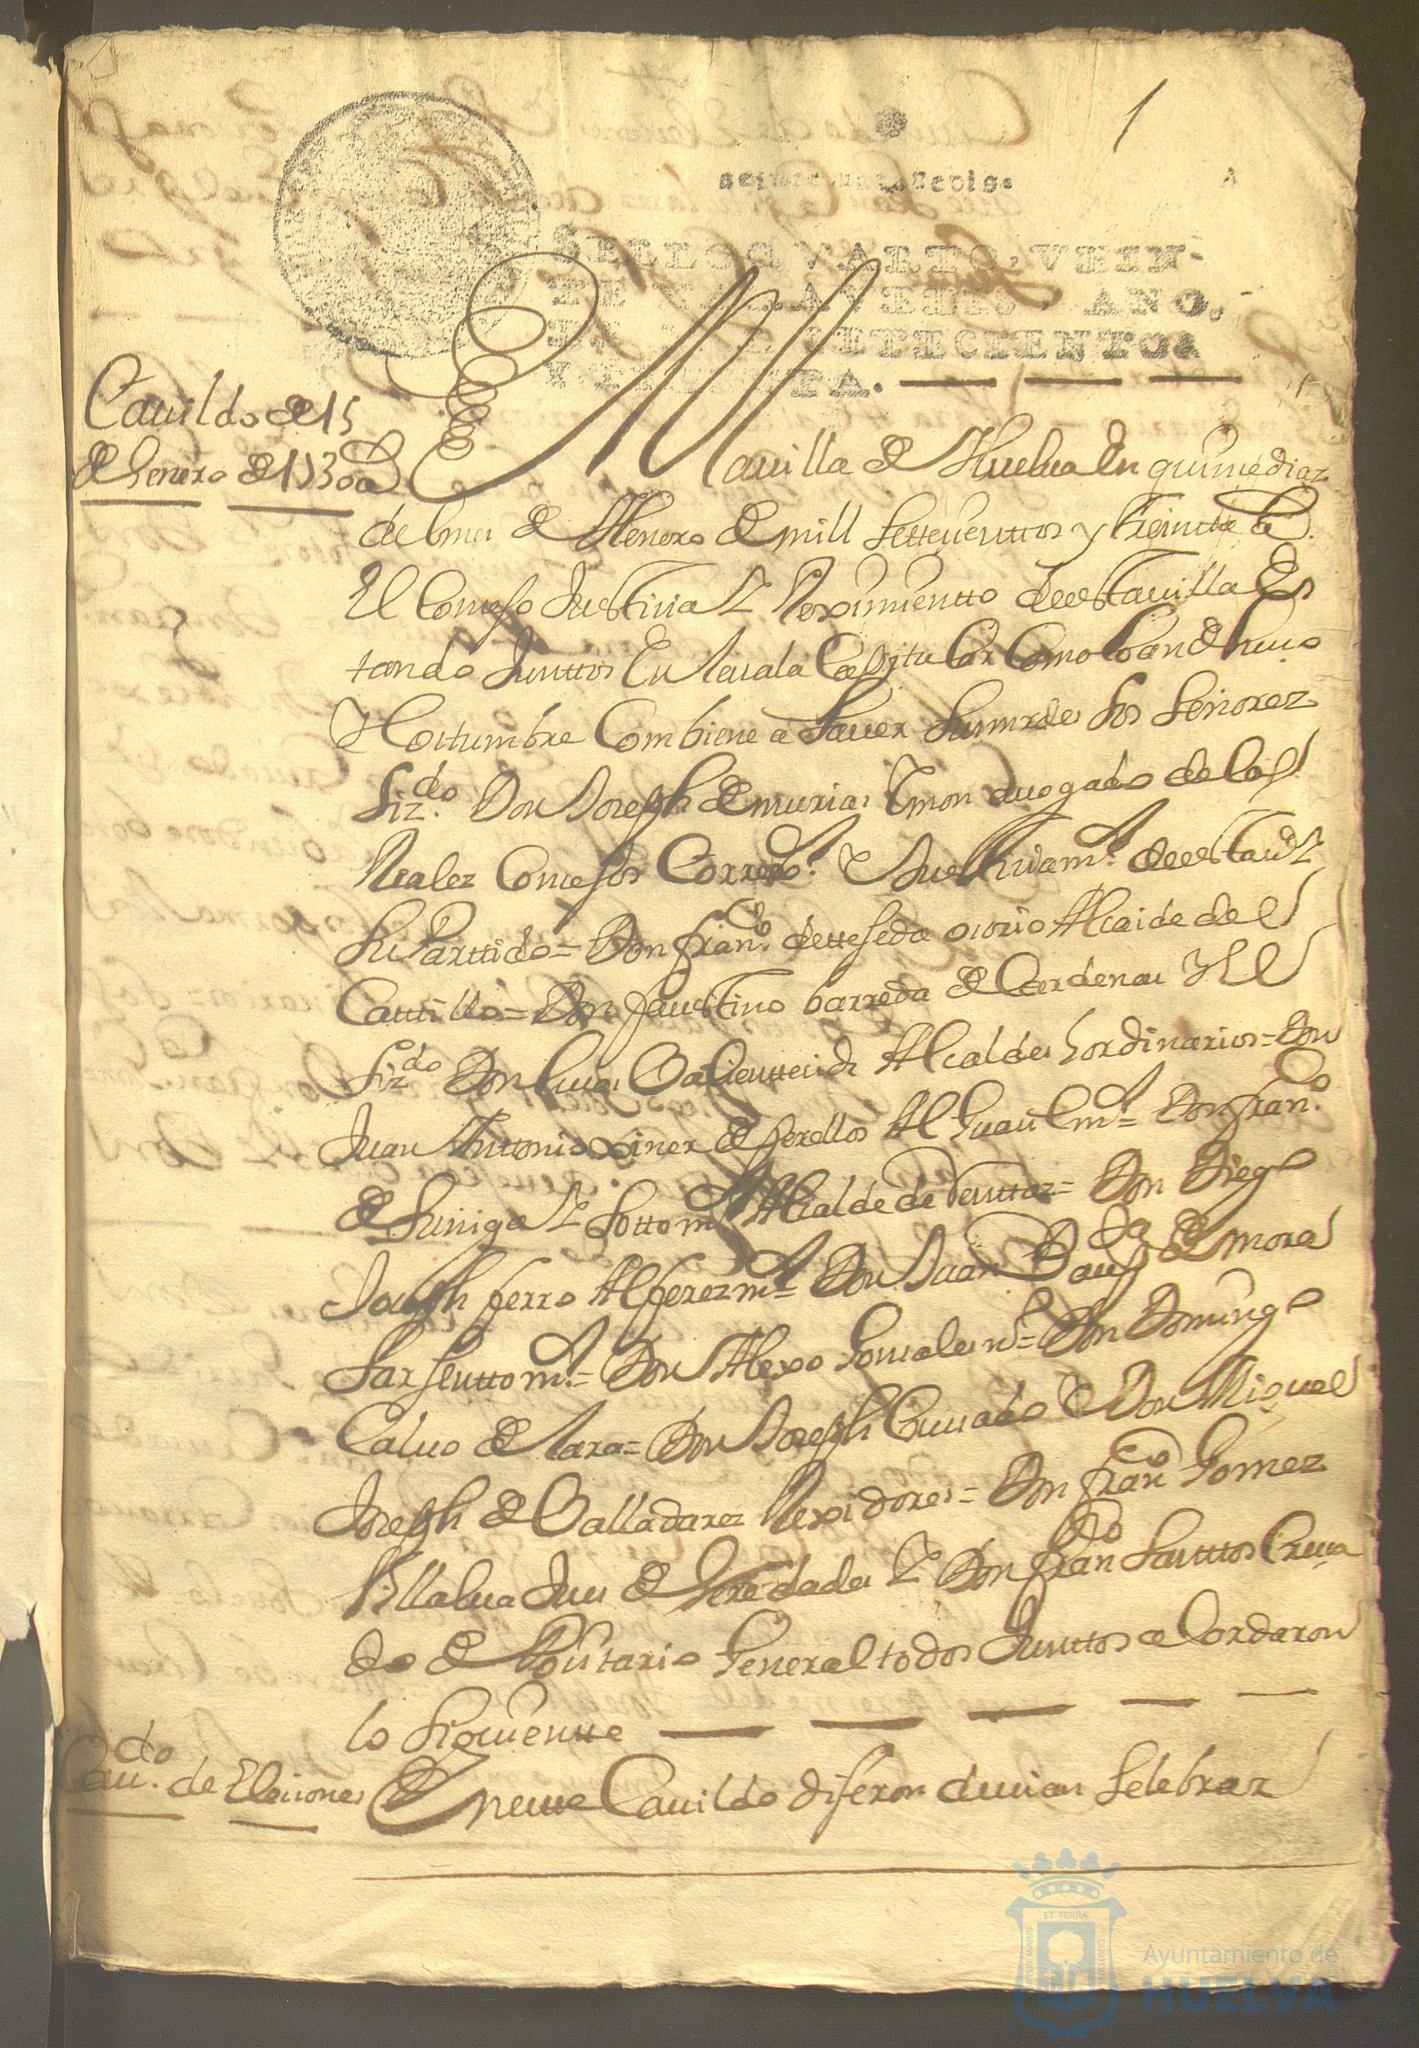 1
SELLO QVARTO, VEIN-
TE MARAVEDIS, AÑO
DE MIL SETECIENTOS
Y TREINTA.
Cauildo de 15
de henero de 1730 a.
En la uilla de Huelua En quinze dias
del mes de Henero de mill Settezenttos y treintta a.
El Conzejo Justizia Y Reximientto de estta uilla Es
tando Junttos En la sala Capitular Como lo an de huso
Y Costumbre Combiene a Sauer sus mrdes los Señorez
Lizdo. Don Joseph de murias Ymon auogado de los
Realez Consejos Correxor. Y Justizia mr. de esta uª Y
su Parttido = Don Franco. de ttejeda osorio Alcaide del
Casttillo = Don Faustino barreda de Cardenas Y El
Lizdo. Don Lucas Alcaldes hordinarios = Don
Juan Anttonio xinez de perellos Alguasil mr. = Don Franco.
de suniga Y Sottomr. Alcalde de = Don Diego
Joseph ferro Alferez mr. = Don Juan de mora
Sarjentto mr. = Don Alexo Gonzales = Don Domingo
Caluo de lara = Don Joseph Cruzado Y Don Miguel
Joseph de Valladarez Rexidores = Don Franco Gomez
Villalua Jues de heredades Y Don Franco Santtos Cruza
do de Possitario General todos Junttos acordaron
lo siguientte
Caudo. de Elecionez
En estte Cauildo dijeron deuian Selebrar
ET TERRÆ
Ayuntamiento de
HUELVA